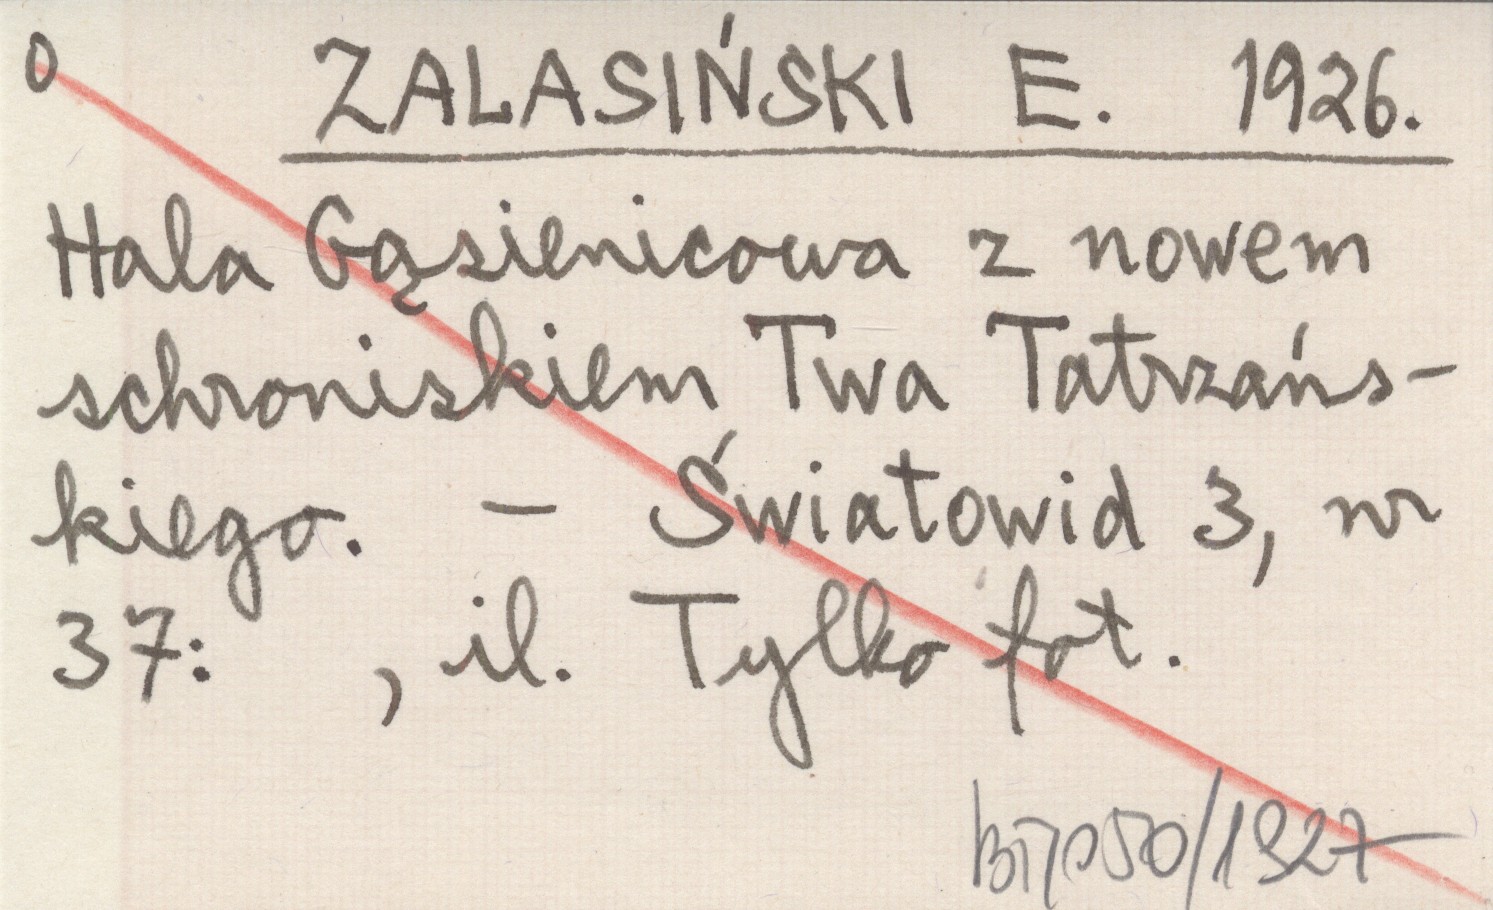 0 ZALASIŃSKI E. 1926.
Hala Gąsienicowa z nowem
schroniskiem Twa Tatrzańs-
kiego. – Światowid 3, nr
37: , il. Tylko fot.
/1927